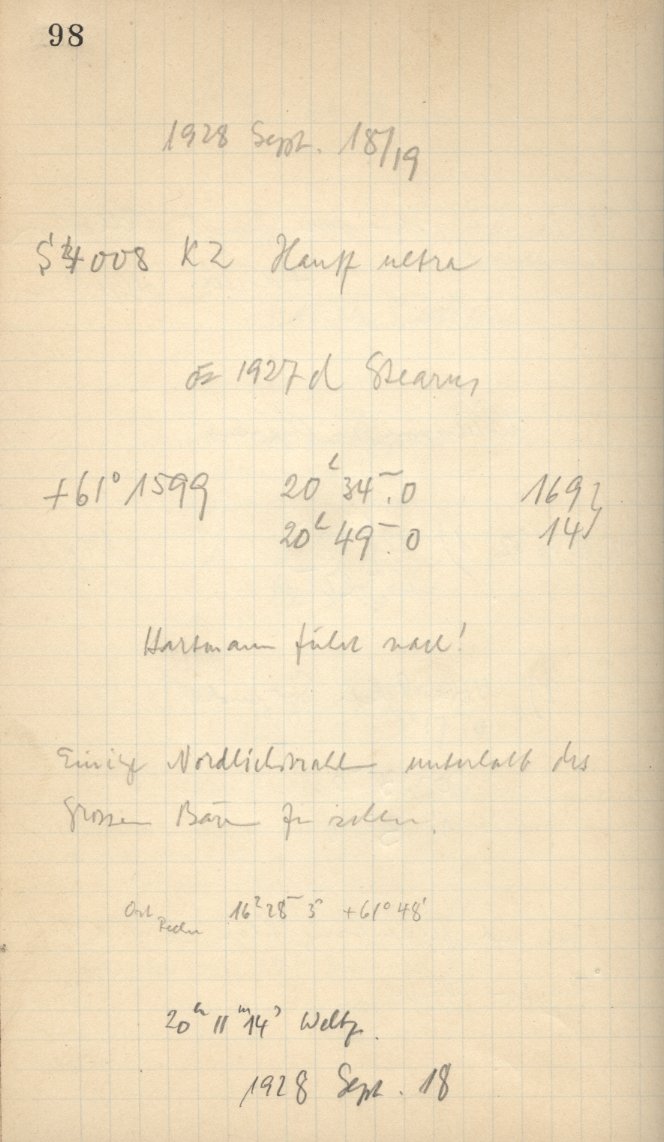 98
1928 Sept. 18/19
S 4008 K2 Hauff ultra
1927 d Stearns
+61° 1599 20h 34m.0 169
20h 49m.0 14
Hartmann führt nach!
Einige Nordlichtstrahlen unterhalb des
Grossen Bären zu sehen.
Ort 16h 28m 5 +61° 48'
20h 11m 14s Weltz.
1928 Sept. 18